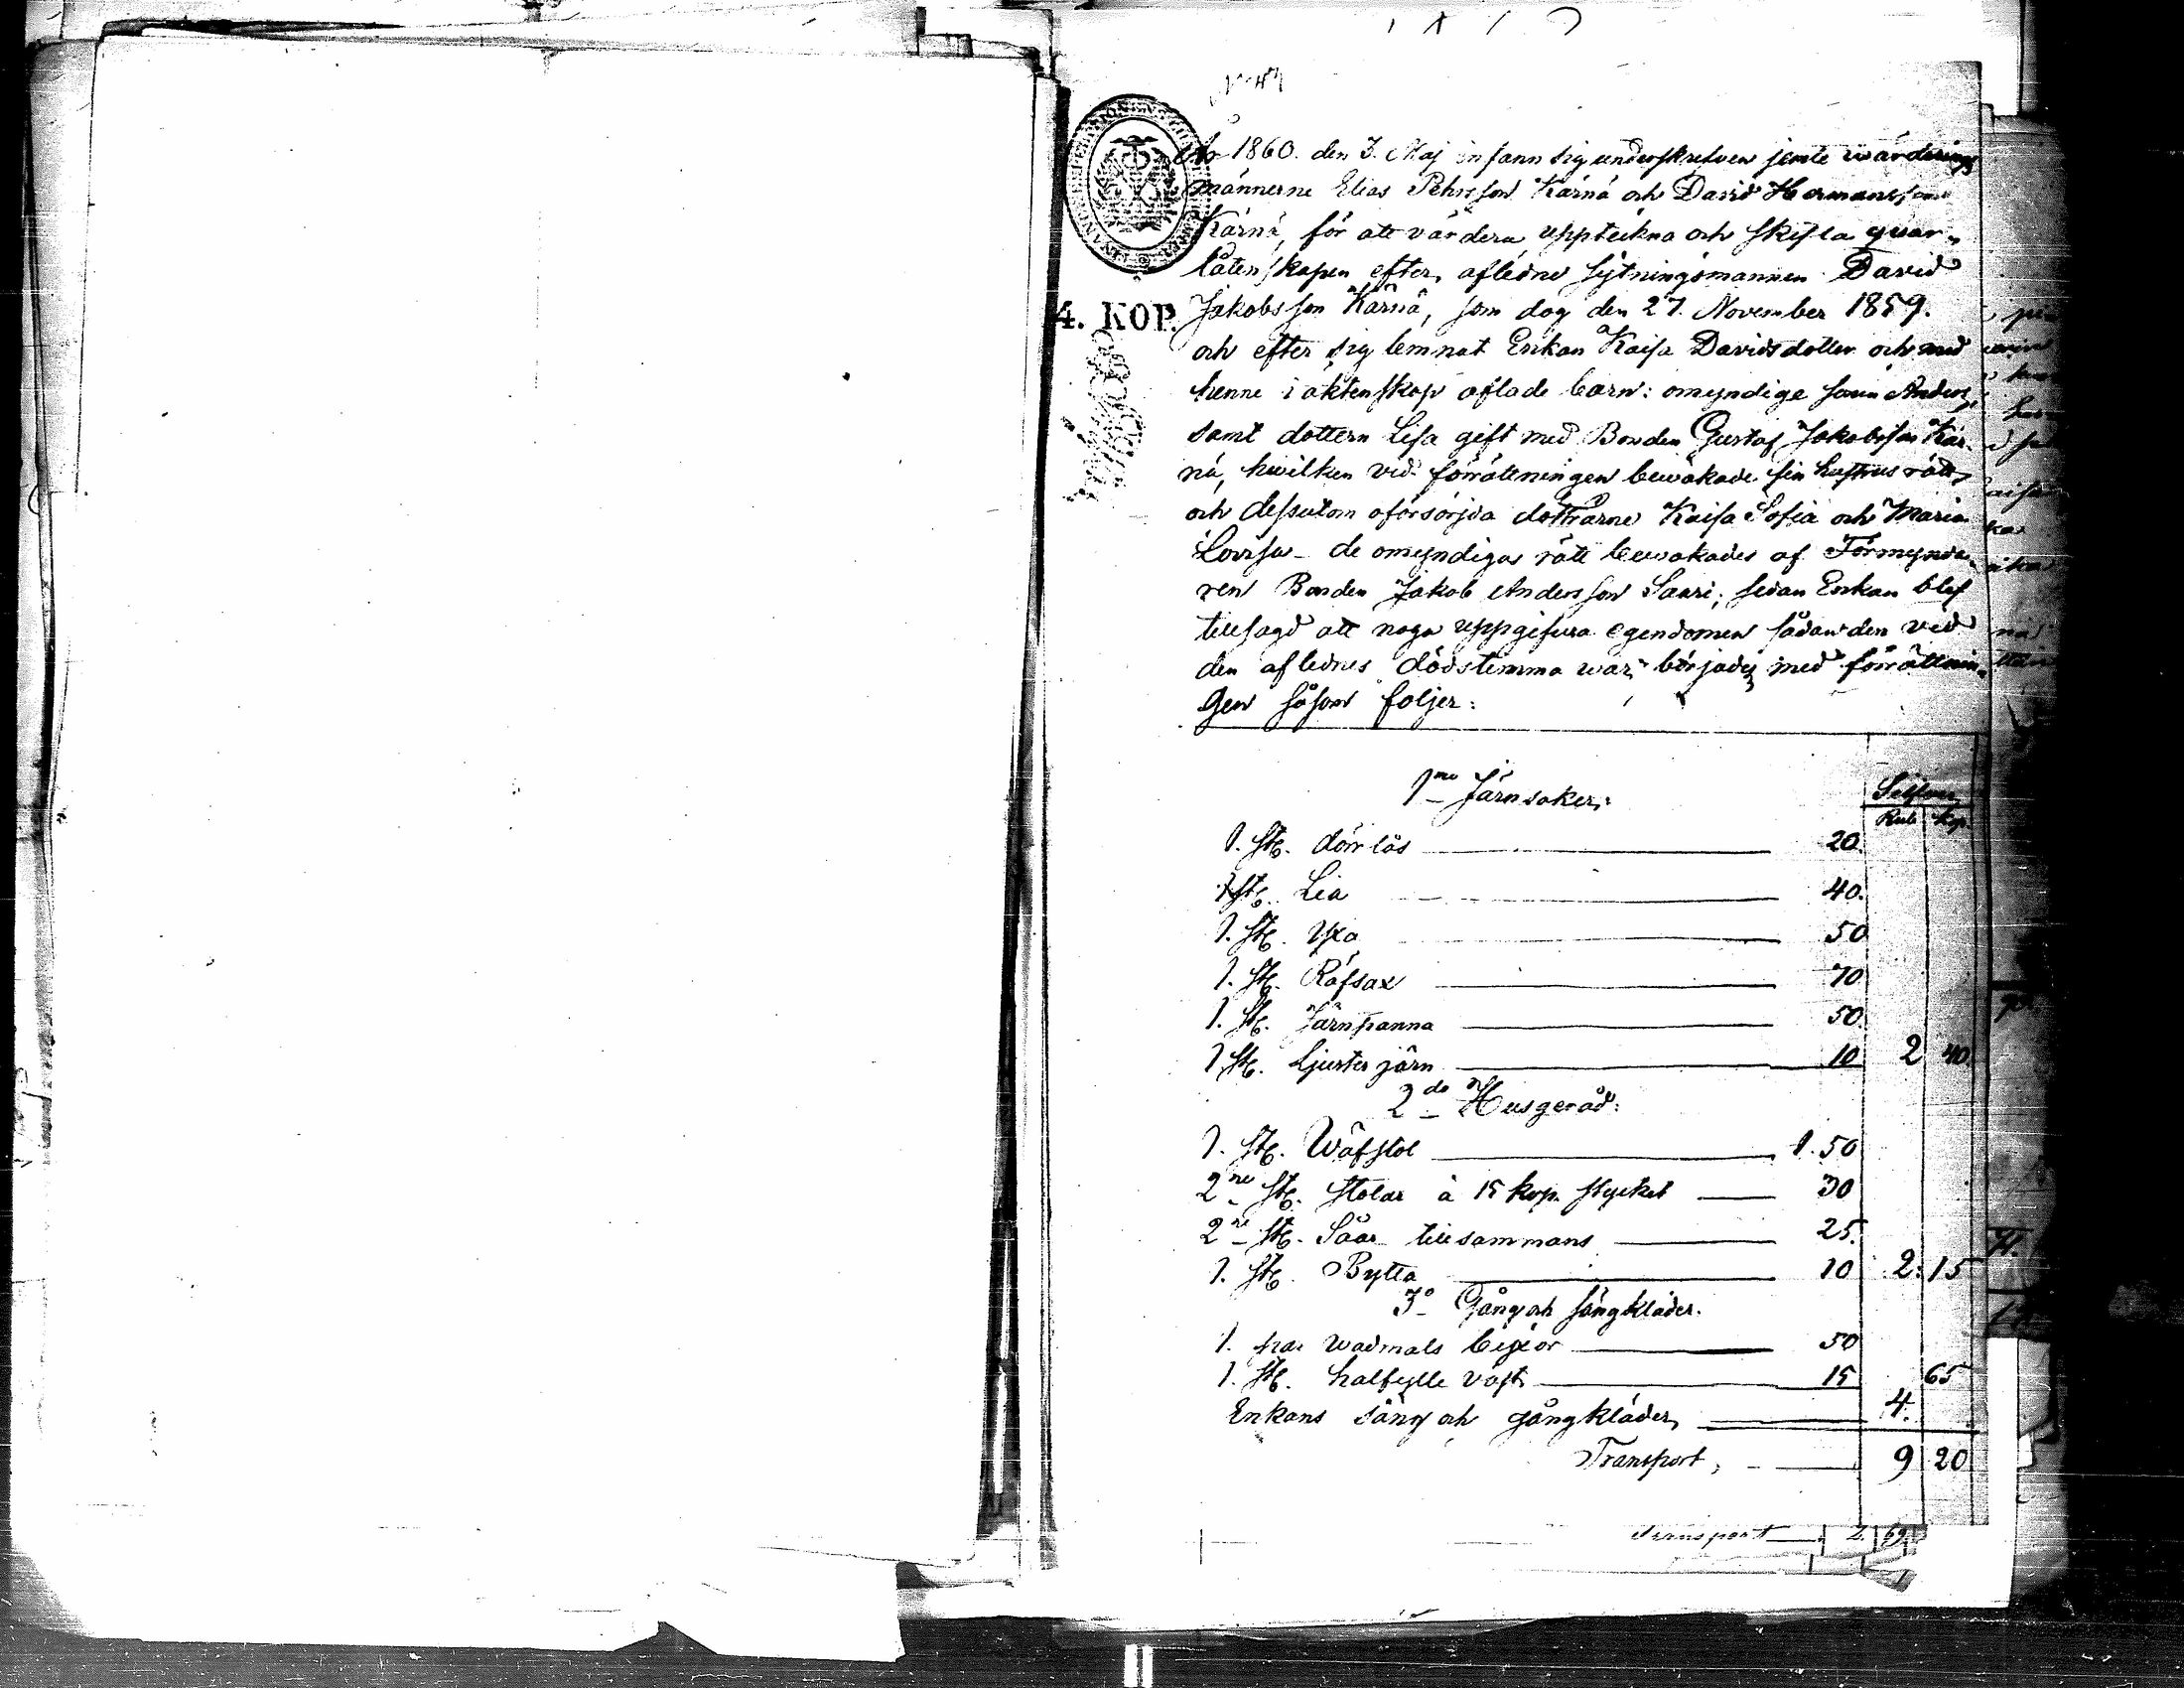 N:o 47
År 1860. den 3. Maj infann sig underskrefven jemte wärderings
männerne Elias Pehrsson Kärnä och David Hermansson
Kärnä, för att värdera uppteckna och skifta quar-
låtenskapen efter, aflidne sytningsmannen David
4. KOP.
Jakobsson Kärnä, som dog den 27. November 1859.
och efter sig lemnat Enkan Kaisa Davidsdotter och med
henne i äktenskap aflade barn: omyndige sonen Anders,
samt dottern Lisa gift med Bonden Gustaf Jakobsson Kär-
nä, hwilken vid förrättningen bewakade sin hustrus rätt,
och dessutom oförsörjda döttrarne Kaisa Sofia och Maria
Lovisa – de omyndigas rätt bewakades af Förmynda-
ren Bonden Jakob Andersson Saari; sedan Enkan blef
tillsagd att noga uppgifwa egendomen sådan den vid
den aflidnes dödstimma war, börjades med förrättnin-
gen såsom följer:
1mo Järnsaker: Silfwer
Rub Kop.
1. st. dörrlås 20.
1 st. Lia 40.
1. st. Yxa 50
1. st. Räfsax 70
1. st. Järnpanna 50
1 st. Ljusterjärn 10 2 40
2do Husgeråd:
1. st. Wäfstol 1.50
2ne st. Stolar à 15 kop. stycket 30
2ne st. Såar tillsammans 25.
1. st. Bytta 10 2. 15
3o Gång och sängkläder.
1. par wadmals bixor 50
1. st. halfylle väst 15 65
Enkans säng och gångkläder, 4.
Transport, 9 20
Transport 2. 69.